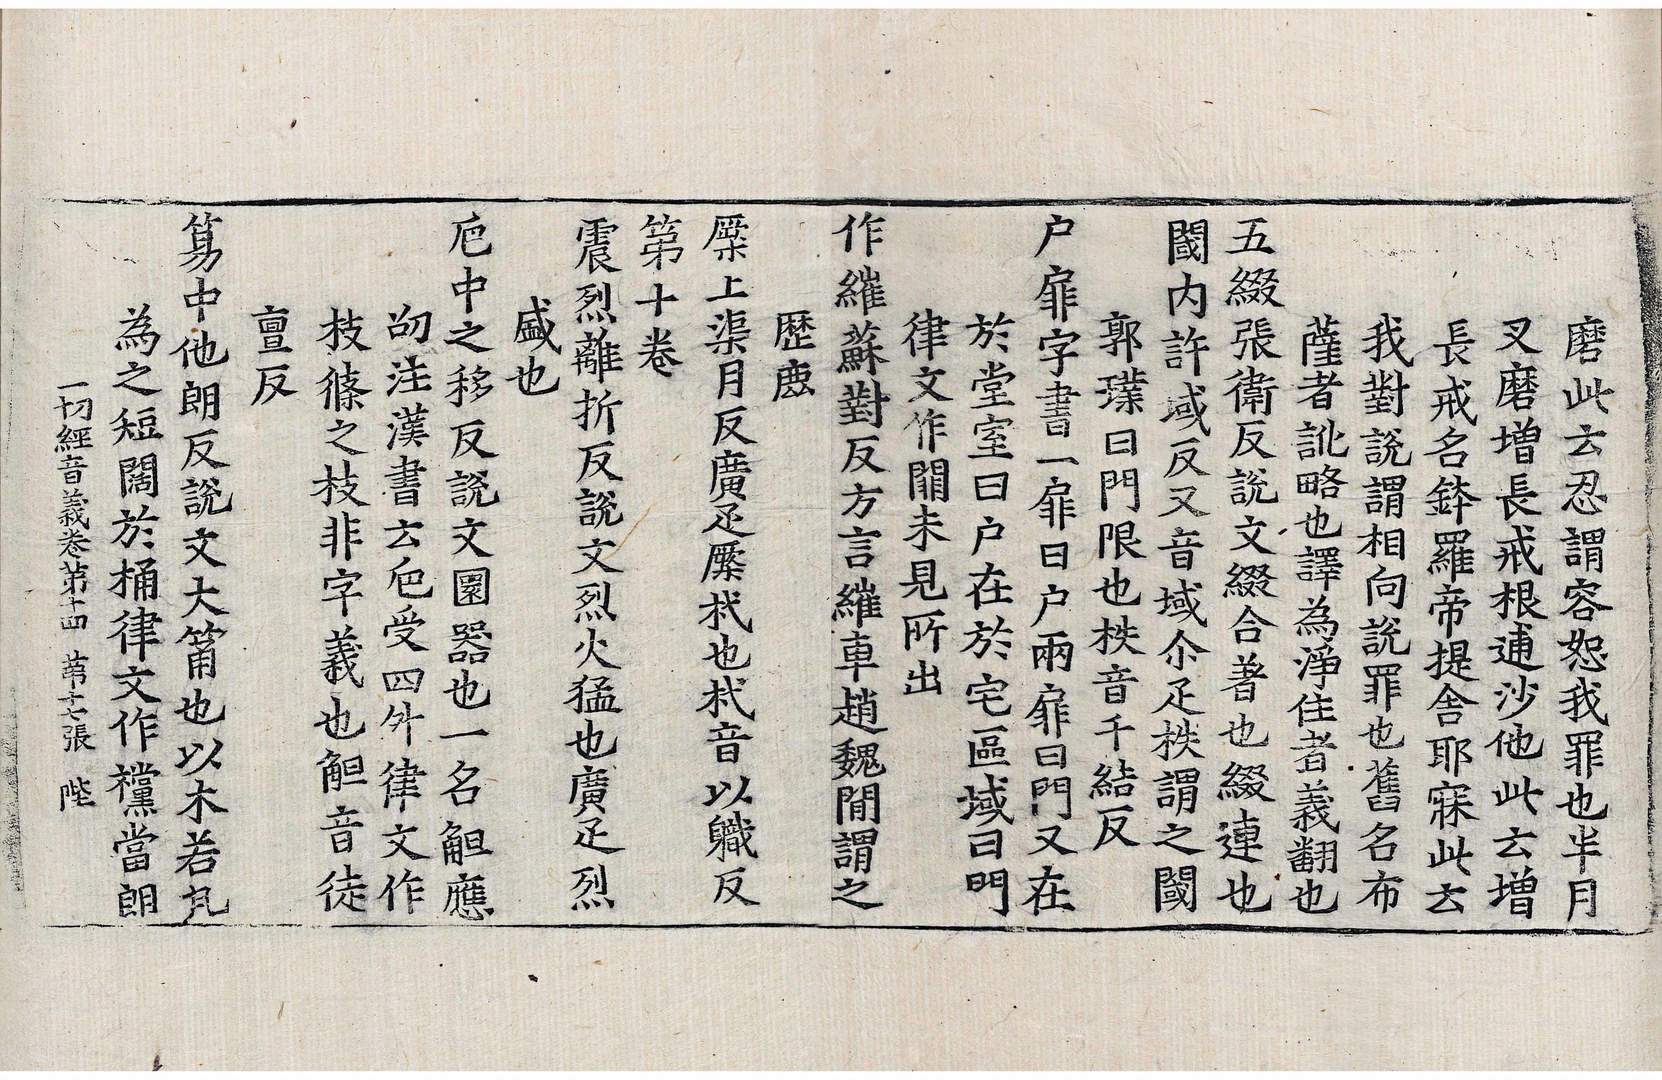 磨此云忍謂容恕我罪也半月
叉磨增長戒根逋沙他此云增
長戒名鉢羅帝提舍耶寐此云
我對說謂相向說罪也舊名布
薩者訛略也譯為淨住者義翻也
五綴張衛反說文綴合著也綴連也
閾内許域反又音域尒疋柣謂之閾
郭璞曰門限也柣音千結反
户扉字書一扉曰户兩扉曰門又在
於堂室曰户在於宅區域曰門
律文作𨵈未見所出
作繀蘇對反方言繀車趙魏間謂之
歷鹿
橜上渠月反廣疋橜杙也杙音以軄反
第十卷
震烈離折反說文烈火猛也廣疋烈
盛也
巵中之移反說文圓器也一名觛應
劭注漢書云巵受四升律文作
枝篠之枝非字義也觛音徒
亶反
簜中他朗反說文大筩也以木若瓦
為之短闊於桶律文作欓當朗
一切經音義卷第十四　第十七張　陛